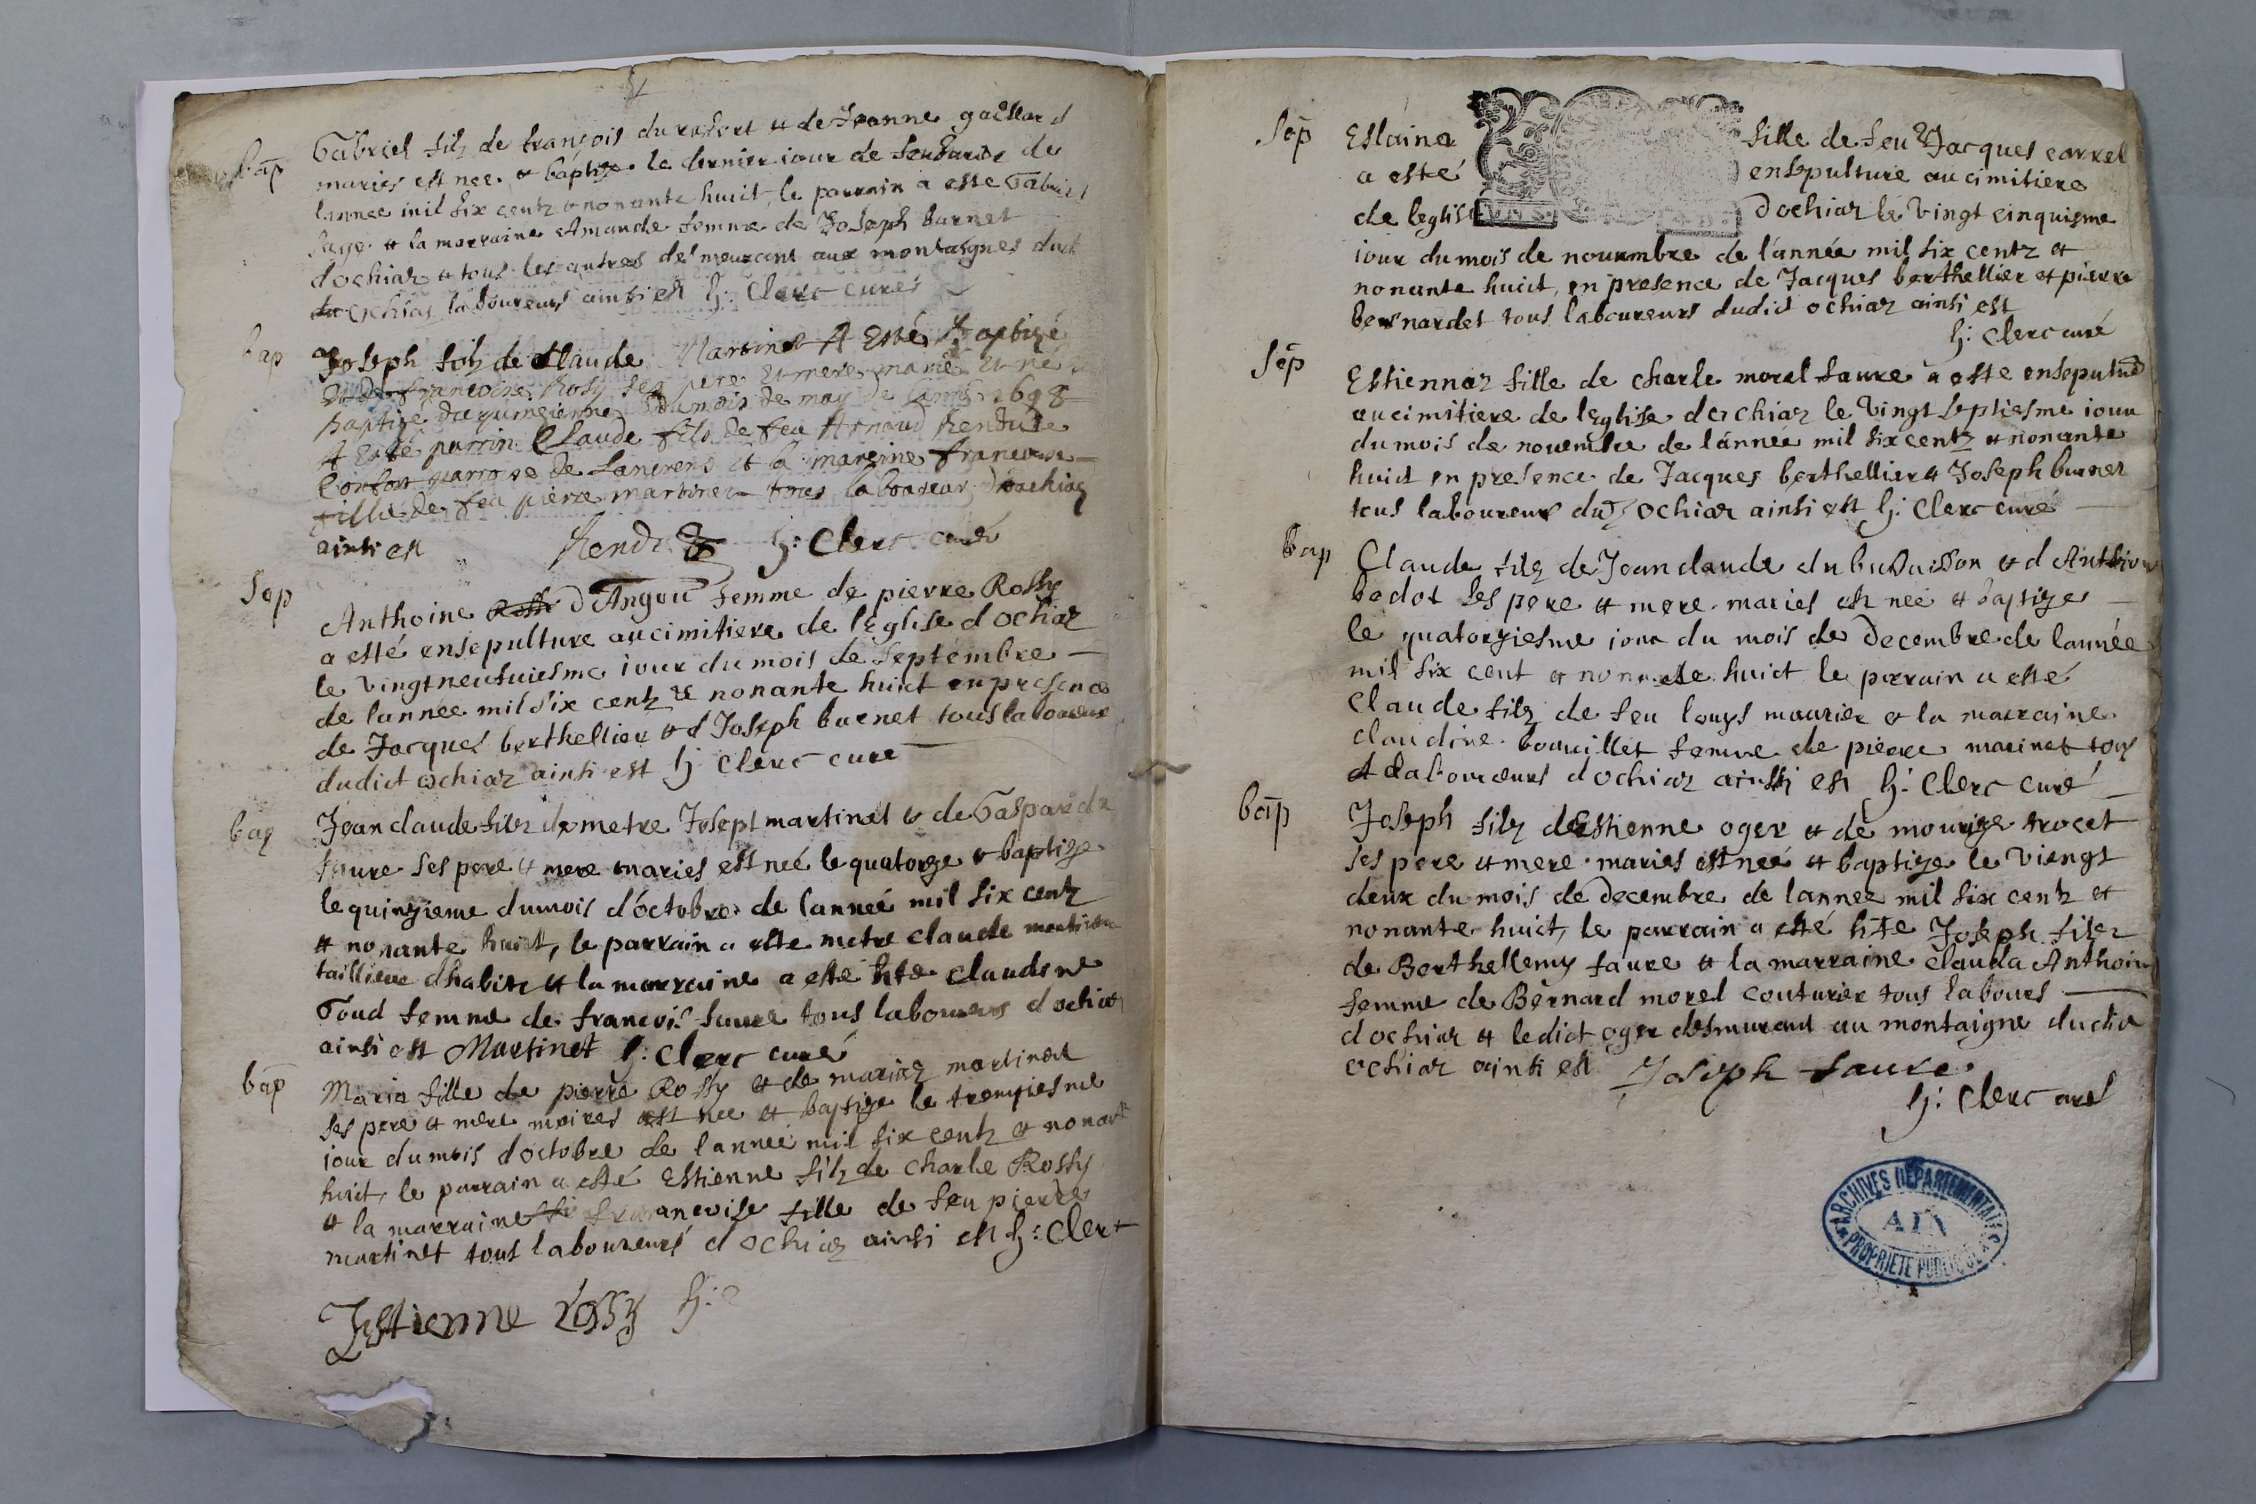 bap
Gabriel filz de françois durafort et de Jeanne gaillard
maries est nee et baptize le dernier iour de
lannee mil six centz et nonante huit, le parrain a este Gabriel
et la marraine Amande femme de Joseph burnet
dochiaz et tous les autres demeurent aux montaignes dudt
ochiaz laboureurs ainsi est h: Clerc curé
bap
Joseph filz de Claude Martinet A Esté Baptizé
francoise Rosy ses pere et mere marié Et né
baptizé du mois de may de lanné 1698
A Esté parrin Claude fils de feu Arnaud Rendu de
Confort parroise de Lancrens et la mareine francoise
fillie de feu pierre martinet tous laboureur dochiaz
ainsi est Rendu h: Clerc curé
Sep
Anthoine dAngou femme de pierre Rossy
a esté ensepulture au cimitiere de lEglise dochiaz
le vingtneufuiesme iour du mois de Septembre
de lannee mil six centz et nonante huict en presence
de Jacques berthellier et d Joseph burnet tous laboureur
dudict ochiaz ainsi est h: clerc curé
bap
Jean claude filz de metre Josept martinet et de Gasparde
faure ses pere et mere maries est neé le quatorze et baptize
le quinzieme du mois d'octobre de lanneé mil six centz
et nonante huict, le parrain a este metre claude
taillieur dhabitz et la marraine a esté hte claudine
Goud femme de francois faure tous laboureurs dochiaz
ainsi est Martinet h: Clerc curé
bap
Maria fille de pierre Rossy et de mariaz martinet
ses pere et mere maires est nee et baptize le
iour du mois doctobre de lanneé mil six centz et nonante
huict, le parrain a esté Estienne filz de Charle Rossy
et la marraine francoise fille de feu pierre
martinet tous laboureurs dochiaz ainsi est h: Clerc
Estienne rossy h:
Sep
Eslaina fille de feu Jacques carrel
a esté ensepulture au cimitiere
de leglise dochiaz le vingt cinquisme
iour du mois de nouembre de l'année mil six centz et
nonante huict, en presence de Jacques berthellier et pierre
bernardet tous laboureurs dudict ochiaz ainsi est
h: Clerc curé
Sep
Estiennaz fille de charle morel faure a este ensepulturé
au cimitiere de lEglise dochiaz le vingt septiesme iour
du mois de nouembre de l'année mil six centz et nonante
huict en presence de Jacques berthellier et Joseph burnet
tous laboureurs dudt ochiaz ainsi est h: Clerc curé
bap
Claude filz de Jean claude dubuisson et d
bodot ses pere et mere maries est neé et baptize
le quatorziesme iour du mois de decembre de lannée
mil six cent et nonante huict le parrain a esté
claude filz de feu louys maurier et la marraine
claudine bouvillet femme de pierre marinet tous
laboureurs dochiaz ainssi est h: Clerc curé
bap
Joseph filz d'Estienne oger et de mourize trocet
ses pere et mere maries est neé et baptize le viengt
deux du mois de decembre de lannee mil six centz et
nonante huict, le parrain a esté hte Joseph filz
de Berthellemy faure et la marraine clauda Anthoine
femme de Bernard morel couturier tous labours
dochiaz et ledict oger desmurant au montaigne dudict
ochiaz ainsi est Joseph faure
h: Clerc curé
ARCHIVES DÉPARTEMENTALES
AIN
PROPRIETE PUBLIQUE